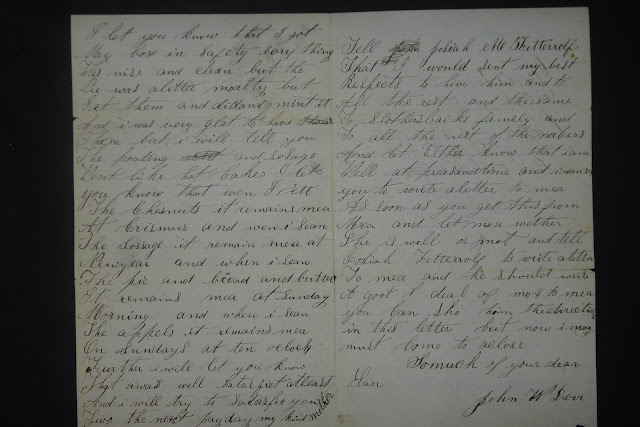 I let you know that I got
May box in safety Eary thing
Was nise and clean but the
Pie was alittle moalty but
I et them and didand mint it
And i was very glat to have
them but i will tell you
The pouting and Sossage
Went Like hot Cakes I let
you know that wen I ett
The Chesnuts it remains mea
At Crismus and wen i sean
The Sossage it remain mea at
Newyear and when i sean
The pie and bread and butter
It remains mea at Sunday
Morning and when i sean
The appels it remains mea
On Sundays at ten oclock
Further i will let you know
that awas well sataspiet atleast
And i will try to satasfie you
Two the next payday my kind mother
Tell Josiah M Fetterrolf
That I would sent my best
Respects to him him and to
All the rest and the same
To Slothersbacks fimely and
To all the rest of the nabers
And let Esther know that i am
Well at preasandtime and i want
you to write aletter to mea
As soon as you get this from
Mea and let mea wether
She is well or not and tell
Josiah Fetterrolf to write aletter
To mea and he should write
A goot I deal of mos to mea
you Can sho him the directions
in this letter but now i may
must come to aclose
Somuch of your dear
Son
John W Derr